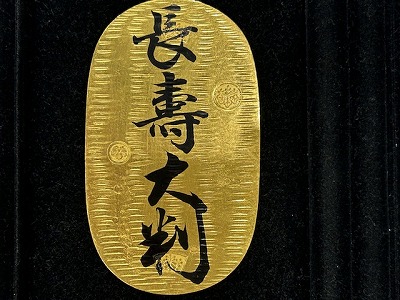 長壽大判